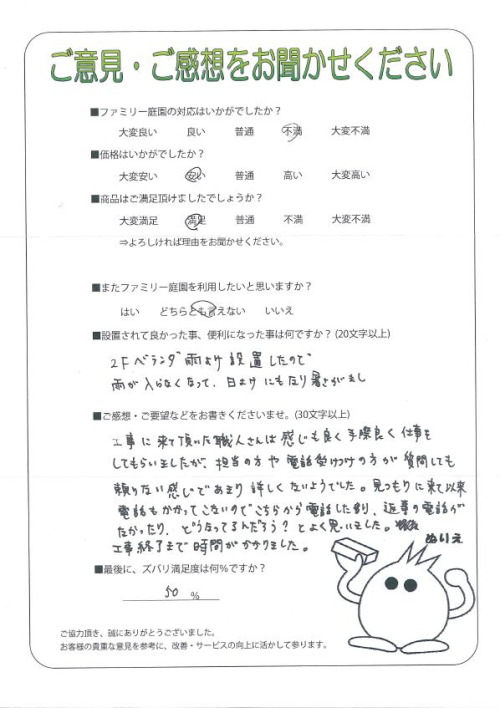 ご意見・ご感想をお聞かせください
■ファミリー庭園の対応はいかがでしたか？
大変良い 良い 普通 不満 大変不満
■価格はいかがでしたか？
大変安い 安い 普通 高い 大変高い
■商品はご満足頂けましたでしょうか？
大変満足 満足 普通 不満 大変不満
⇒よろしければ理由をお聞かせください。
■またファミリー庭園を利用したいと思いますか？
はい どちらとも言えない いいえ
■設置されて良かった事、便利になった事は何ですか？(20文字以上)
2Fベランダ雨よけ設置したので
雨が入らなくなって、日よけにもなり暑さがまし
■ご感想・ご要望などをお書きくださいませ。(30文字以上)
工事に来て頂いた職人さんは感じも良く手際良く仕事を
してもらいましたが、担当の方や電話受けつけの方が質問しても
頼りない感じであまり詳しくないようでした。見つもりに来て以来
電話もかかってこないのでこちらから電話したり、返事の電話が
なかったり、どうなってるんだろう？とよく思いました。
工事終了まで時間がかかりました。
ぬりえ
■最後に、ズバリ満足度は何％ですか？
50 ％
ご協力頂き、誠にありがとうございました。
お客様の貴重な意見を参考に、改善・サービスの向上に活かして参ります。